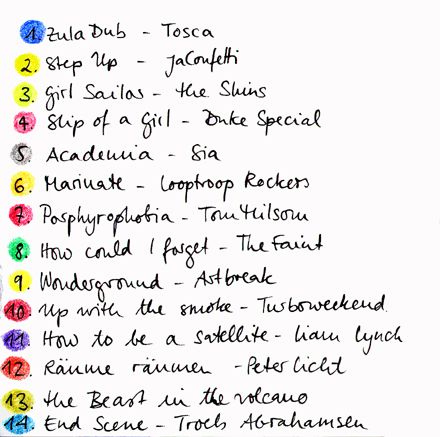 1. Zula Dub - Tosca
2. Step Up - JaConfetti
3. Girl Sailor - the Shins
4. Slip of a Girl - Duke Special
5. Academia - Sia
6. Marinate - Looptroop Rockers
7. Posphyrophobia - Tom Hilsom
8. How could I forget - The Faint
9. Wonderground - Astbreak
10. Up with the smoke - Turboweekend
11. How to be a satellite - Liam Lynch
12. Räume räumen - Peter Licht
13. the Beast in the volcano
14. End Scene - Troels Abrahamsen